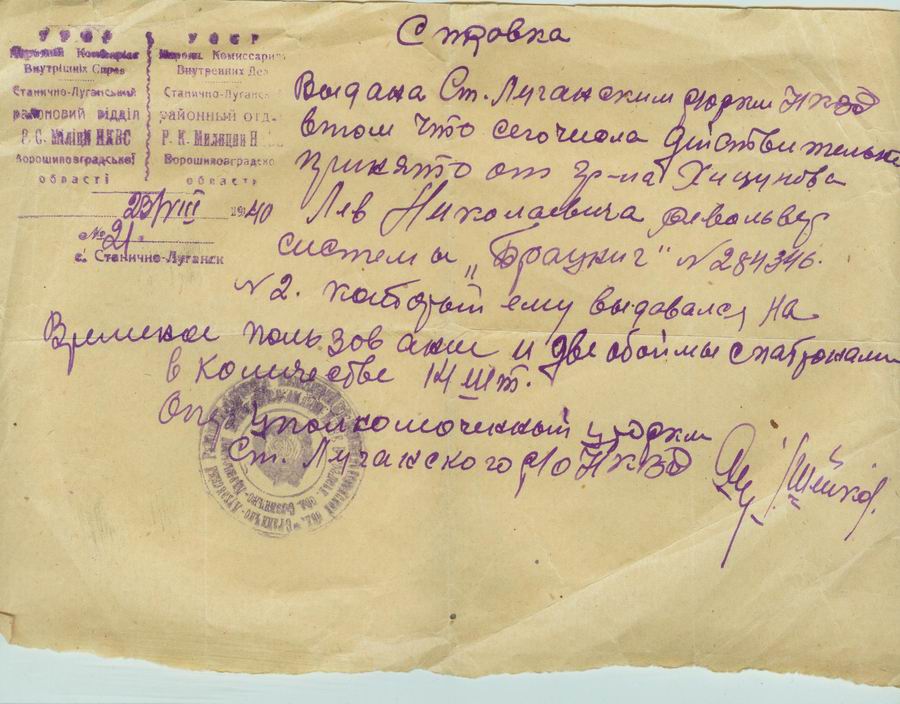 Справка
У Р С Р
Народний Комісаріат
Внутрішніх Справ
Станично-Луганський
районовий відділ
Р. С. Міліції НКВС
Ворошиловградської
області
У С С Р
Народн. Комиссариат
Внутренних Дел
Станично-Луганск
районный отд
Р. К. Милиции Н
Ворошиловградско
област
23/VIII 1940
№ 21.
с. Станично-Луганск
Выдана Ст. Луганским роркм НКВД
в том что сего числа действительно
принято от гр-на Хицунова
Лев Николаевича револьвер
системы „Браунинг" № 284346.
№ 2. который ему выдавался на
Временое пользование и две обоймы с патронами
в количестве 14 шт.
Опер уполномоченный роркм
Ст. Луганского РО НКВД